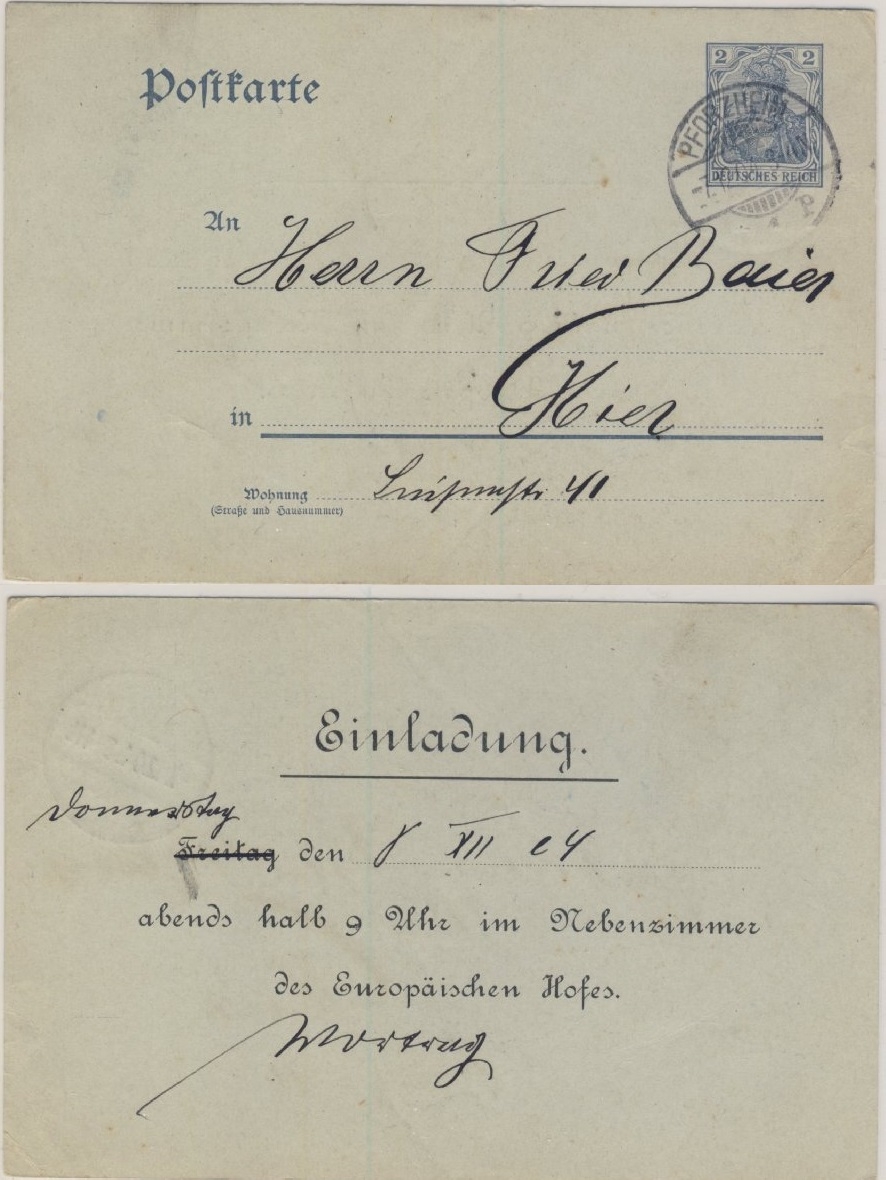 Postkarte
2 2
PFORZHEIM
DEUTSCHES REICH
An
Herrn Fried Baier
in Hier
Wohnung Luisenstr 41
(Straße und Hausnummer)
Einladung.
Donnerstag
Freitag den 8 XII 04
abends halb 9 Uhr im Nebenzimmer
des Europäischen Hofes.
Vortrag